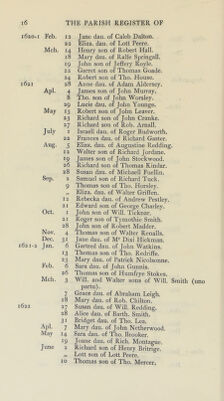 16 THE PARISH REGISTER OF
1620-1 Feb. 12 Jane dau. of Caleb Dalton.
22 Eliza. dau. of Lott Peere.
Mch. 14 Henry son of Robert Hall.
18 Mary dau. of Ralfe Springall.
19 John son of Jeffery Royle.
22 Garret son of Thomas Goade.
24 Robert son of Tho. House.
1621 28 Anne dau. of Adam Aldersey.
Apl. 4 James son of John Murray.
8 Tho. son of John Worsley.
29 Lucie dau. of John Younge.
May 15 Robert son of John Leaver.
23 Richard son of John Cranke.
27 Richard son of Rob. Amall.
July 1 Israell dau. of Roger Rudworth.
22 Frances dau. of Richard Gatter.
Aug. 5 Eliza. dau. of Augustine Redding.
12 Walter son of Richard Jordane.
19 James son of John Stockwood.
26 Richard son of Thomas Kinder.
28 Susan dau. of Michaell Puellin.
Sep. 2 Samuel son of Richard Tuck.
9 Thomas son of Tho. Horsley.
„ Eliza. dau. of Walter Griffen.
21 Rebecka dau. of Andrew Pestley.
21 Edward son of George Charley.
Oct. 1 John son of Will. Ticknor.
21 Roger son of Tymothie Smith.
28 John son of Robert Madder.
Nov. 4 Thomas son of Walter Renalls.
Dec. 31 Jane dau. of Mr Dixi Hickman.
1621-2 Jan. 6 Gertred dau. of John Watkins.
13 Thomas son of Tho. Redriffe.
23 Mary dau. of Patrick Nicolsonne.
Feb. 6 Sara dau. of John Gunnis.
26 Thomas son of Humfrye Stokes.
Mch. 3 Will. and Walter sons of Will. Smith (uno
partu).
7 Grace dau. of Abraham Leigh.
18 Mary dau. of Rob. Chilton.
1622 27 Susan dau. of Will. Redding.
28 Alice dau. of Barth. Smith.
31 Bridget dau. of Tho. Lea.
Apl. 7 Mary dau. of John Netherwood.
May 14 Sara dau. of Tho. Brooker.
19 Joane dau. of Rich. Montague.
June 2 Richard son of Henry Britrige.
„ Lott son of Lott Peere.
10 Thomas son of Tho. Mercer.